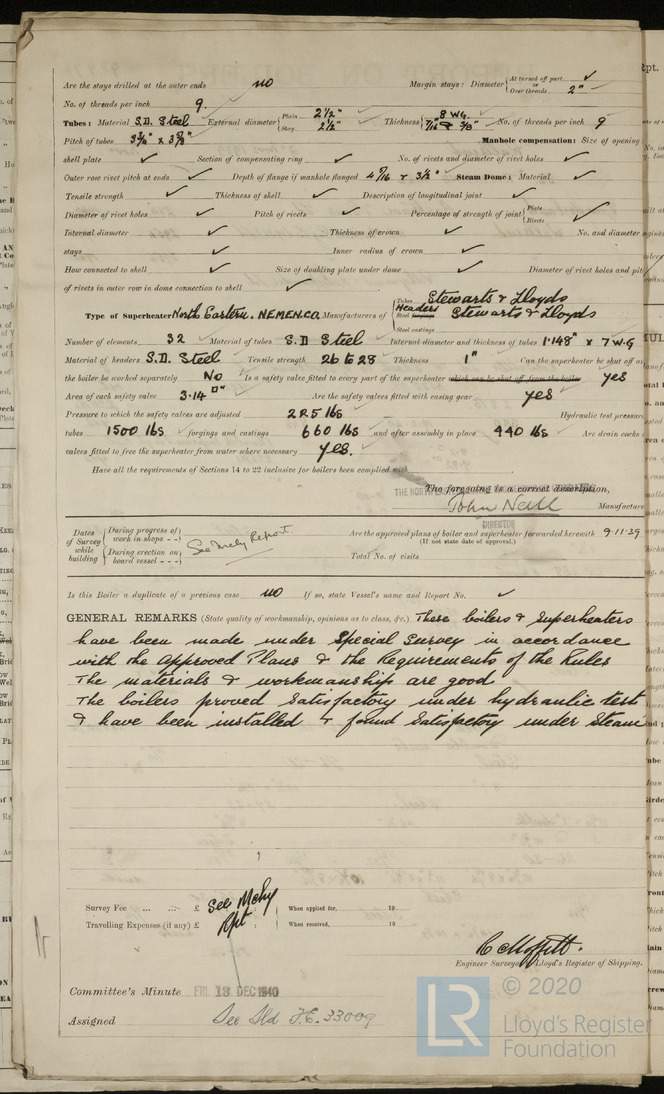 Are the stays drilled at the outer ends no Margin stays: Diameter { At turned off part, ✓ or Over threads 2"
No. of threads per inch 9.
Tubes: Material S.D. Steel External diameter { Plain 2½" Stay 2½" Thickness { 8 WG. 7/16 & 3/8" No. of threads per inch 9
Pitch of tubes 3¾" x 3⅝" Manhole compensation: Size of opening
shell plate ✓ Section of compensating ring ✓ No. of rivets and diameter of rivet holes ✓
Outer row rivet pitch at ends ✓ Depth of flange if manhole flanged 4 5/16 & 3½" Steam Dome: Material ✓
Tensile strength ✓ Thickness of shell ✓ Description of longitudinal joint ✓
Diameter of rivet holes ✓ Pitch of rivets ✓ Percentage of strength of joint { Plate Rivets ✓
Internal diameter ✓ Thickness of crown ✓ No. and diameter
stays ✓ Inner radius of crown ✓
How connected to shell ✓ Size of doubling plate under dome ✓ Diameter of rivet holes and pit
of rivets in outer row in dome connection to shell ✓
Type of Superheater North Eastern. N.E.M.E.N.CO. Manufacturers of { Tubes Stewarts & Lloyds
Headers Steel forgings Stewarts & Lloyds
Steel castings
Number of elements 32 Material of tubes S.D Steel Internal diameter and thickness of tubes 1·148" x 7WG
Material of headers S.D. Steel Tensile strength 26 to 28 Thickness 1" Can the superheater be shut off as
the boiler be worked separately No Is a safety valve fitted to every part of the superheater which can be shut off from the boiler yes
Area of each safety valve 3·14 □" Are the safety valves fitted with easing gear yes
Pressure to which the safety valves are adjusted 225 lbs Hydraulic test pressure
tubes 1500 lbs forgings and castings 660 lbs and after assembly in place 440 lbs Are drain cocks
valves fitted to free the superheater from water where necessary yes.
Have all the requirements of Sections 14 to 22 inclusive for boilers been complied with
The foregoing is a correct description,
THE NOR
John Neill Manufacture
DIRECTOR
Dates of Survey while building { During progress of work in shops - - } See Mchy Report
{ During erection on board vessel - - - }
Are the approved plans of boiler and superheater forwarded herewith 9·11·39
(If not state date of approval.)
Total No. of visits
Is this Boiler a duplicate of a previous case no If so, state Vessel's name and Report No. ✓
GENERAL REMARKS (State quality of workmanship, opinions as to class, &c.) These boilers & Superheaters
have been made under Special Survey in accordance
with the Approved Plans & the Requirements of the Rules
The materials & workmanship are good
The boilers proved Satisfactory under hydraulic test
& have been installed & found Satisfactory under Steam
Survey Fee ... ... £ See Mchy Rpt : : When applied for, 19
Travelling Expenses (if any) £ : : When received, 19
C Moffitt.
Engineer Surveyor to Lloyd's Register of Shipping.
Committee's Minute FRI 13 DEC 1940
Assigned See F.E. 33009
© 2020
LR
Lloyd's Register
Foundation